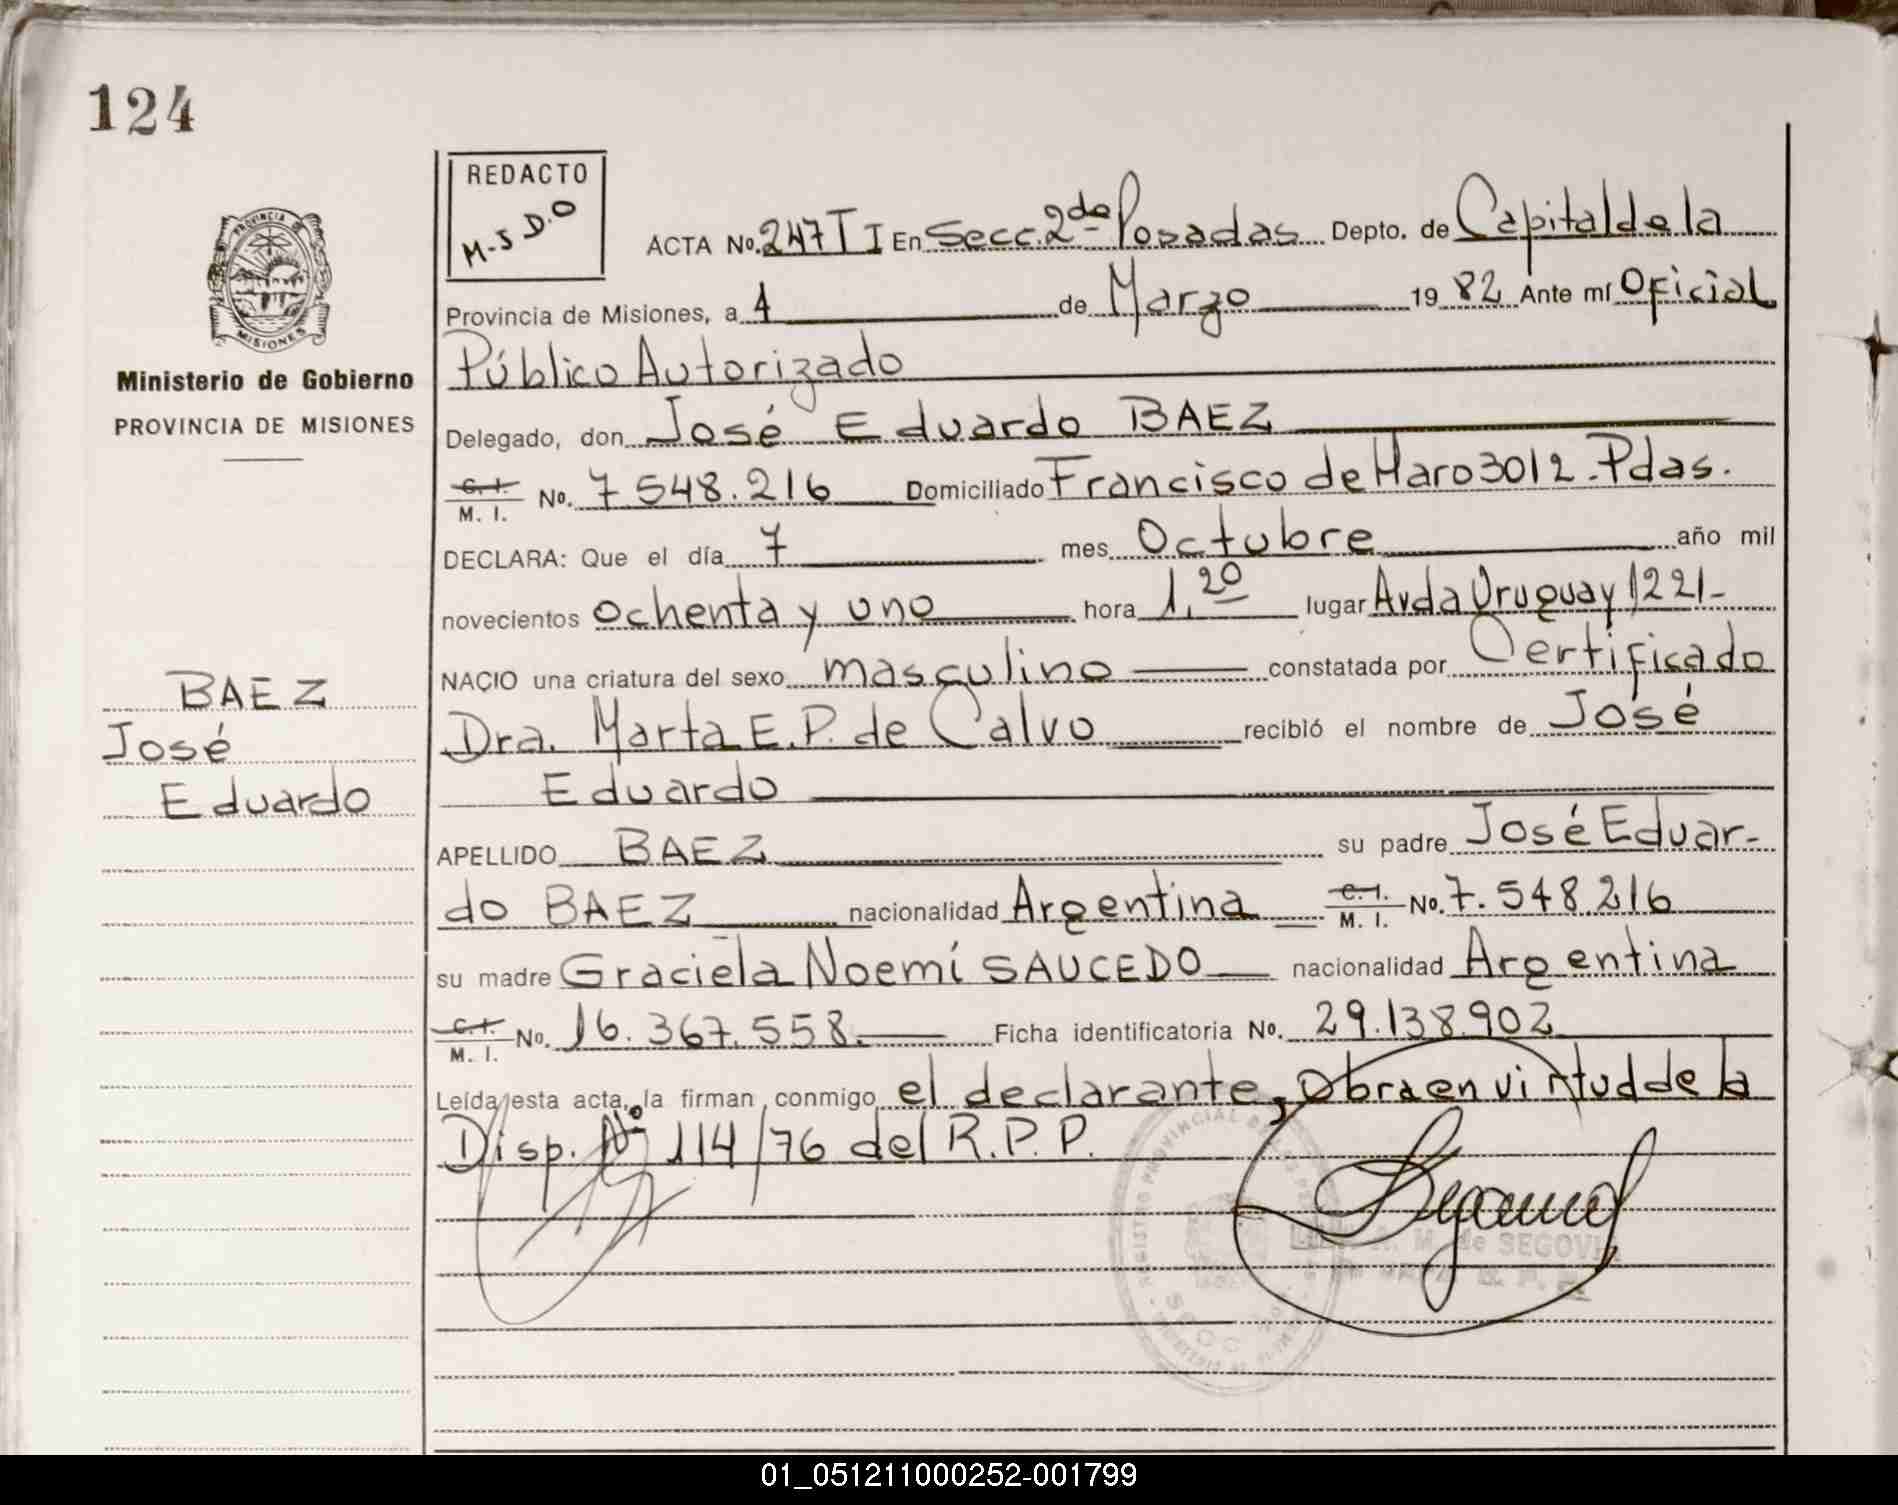 124
REDACTO
M-S D.O
PROVINCIA DE
MISIONES
Ministerio de Gobierno
PROVINCIA DE MISIONES
BAEZ
José
Eduardo
ACTA No. 247 T I En Secc. 2da- Posadas Depto. de Capital de la
Provincia de Misiones, a 4 de Marzo 1982 Ante mí Oficial
Público Autorizado
Delegado, don José Eduardo BAEZ
C. I. M. I. No. 7.548.216 Domiciliado Francisco de Haro 3012. Pdas.
DECLARA: Que el día 7 mes Octubre año mil
novecientos ochenta y uno hora 1,20 lugar Avda Uruguay 1221-
NACIO una criatura del sexo masculino constatada por Certificado
Dra. Marta E. P. de Calvo recibió el nombre de José
Eduardo
APELLIDO BAEZ su padre José Eduar-
do BAEZ nacionalidad Argentina C. I. M. I. No. 7.548.216
su madre Graciela Noemí SAUCEDO nacionalidad Argentina
C. I. M. I. No. 16.367.558. Ficha identificatoria No. 29.138.902
Leída esta acta, la firman conmigo el declarante, Obra en virtud de la
Disp. Nº 114/76 del R.P.P.
REGISTRO PROVINCIAL DE LAS PERSONAS
M. de SEGOVIA
01_051211000252-001799